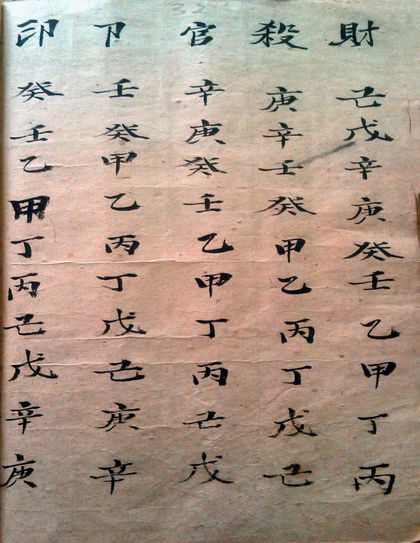 32
財己戊辛庚癸壬乙甲丁丙
殺庚辛壬癸甲乙丙丁戊己
官辛庚癸壬乙甲丁丙己戊
卩壬癸甲乙丙丁戊己庚辛
印癸壬乙甲丁丙己戊辛庚